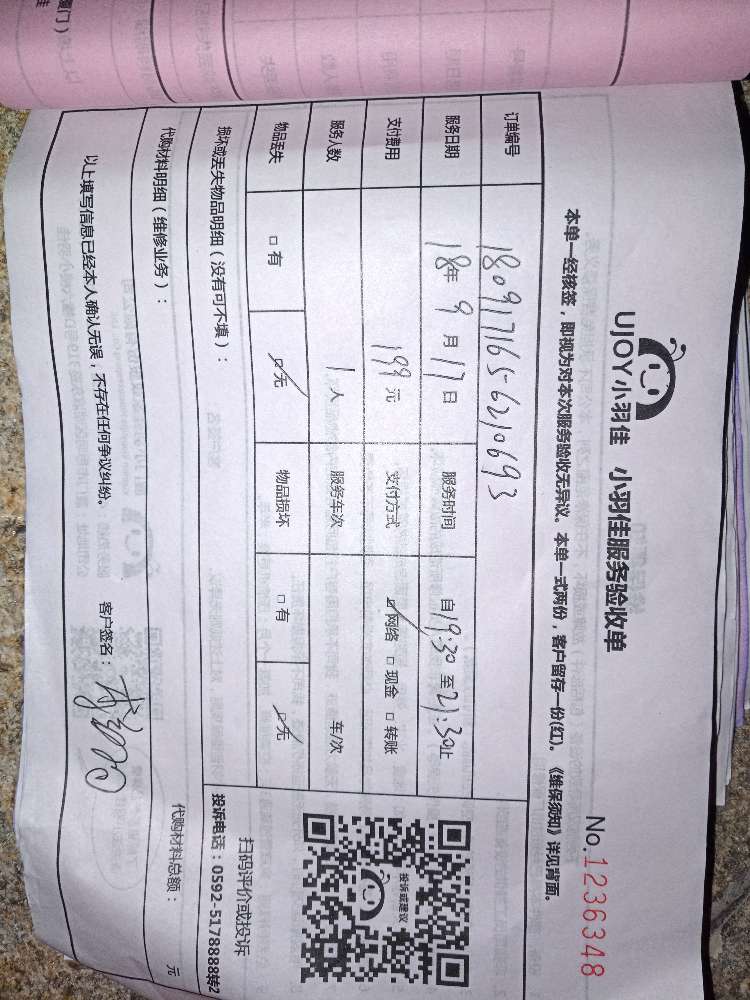 UJOY小羽佳 小羽佳服务验收单
No.1236348
本单一经核签，即视为对本次服务验收无异议。本单一式两份，客户留存一份(红)。《维保须知》详见背面。
订单编号 180917165-6210693
服务日期 18年9月17日 服务时间 自19:30至21:30止
支付费用 199元 支付方式 □网络 □现金 □转账
服务人数 1人 服务车次 车/次
物品丢失 □有 □无 物品损坏 □有 □无
投诉或建议
扫码评价或投诉
损坏或丢失物品明细（没有可不填）：
投诉电话：0592-5178888转2
代购材料明细（维修业务）：
代购材料总额： 元
以上填写信息已经本人确认无误，不存在任何争议纠纷。 客户签名：